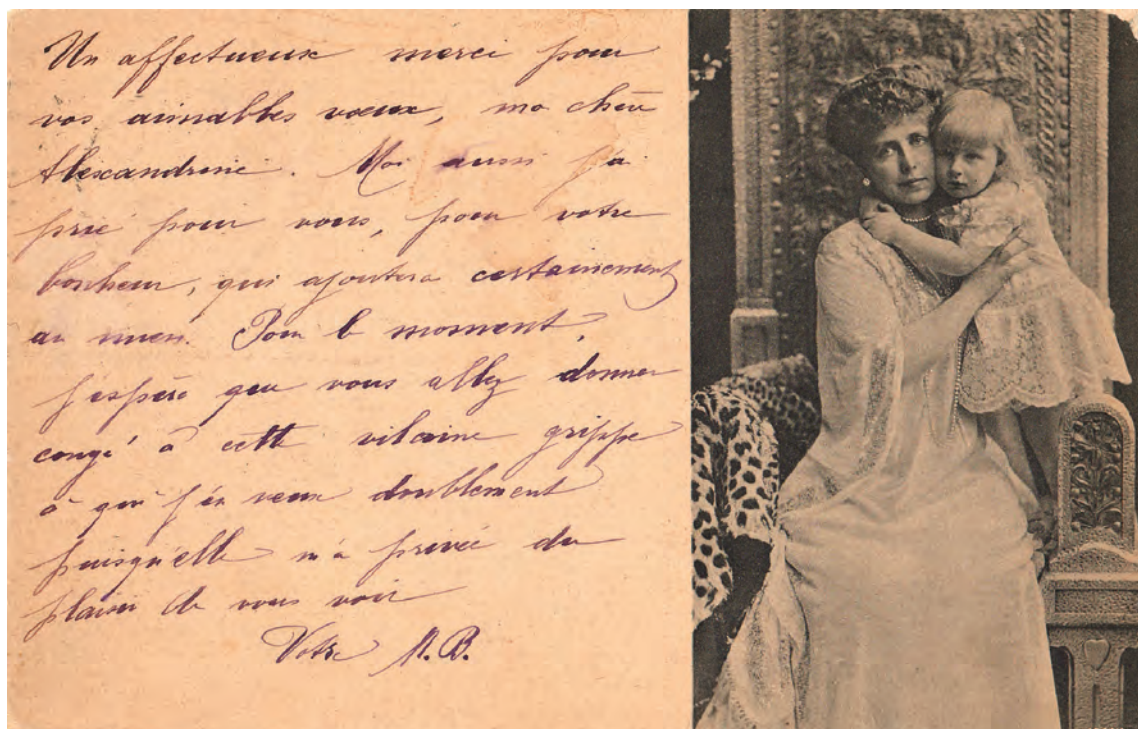 Un affectueux merci pour
vos aimables vœux, ma chère
Alexandrine. Moi aussi j'ai
prié pour vous, pour votre
bonheur, qui ajoutera certainement
au mien. Pour le moment,
j'espère que vous allez donner
congé à cette vilaine grippe
à qui j'en veux doublement
puisqu'elle m'a privée du
plaisir de vous voir
Votre M.B.